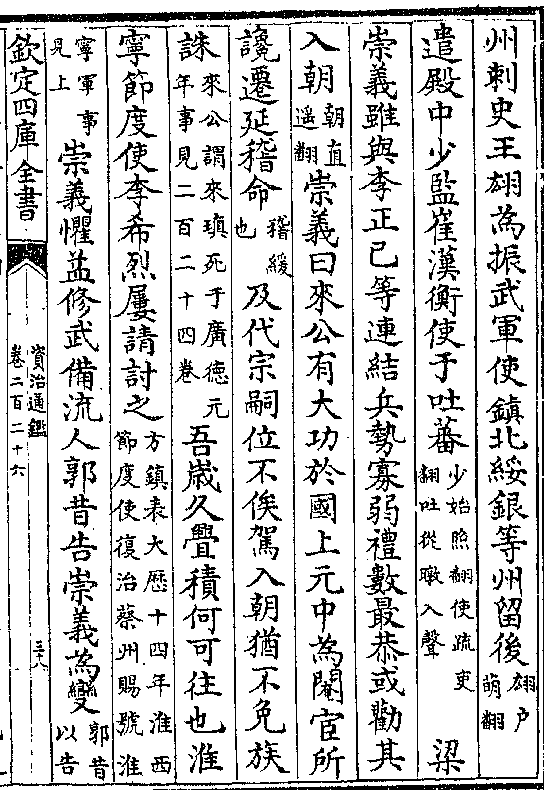 州刺史王翃為振武軍使鎮北綏銀等州留後翃户萌翻
遣殿中少監崔漢衡使于吐蕃少始照翻使疏吏翻吐從暾入聲 梁
崇義雖與李正己等連結兵勢寡弱禮數最恭或勸其
入朝朝直遥翻崇義曰來公有大功於國上元中為閹宦所
讒遷延稽命稽緩也及代宗嗣位不俟駕入朝猶不免族
誅來公謂來瑱死于廣德元年事見二百二十四卷吾歳久舋積何可往也淮
寧節度使李希烈屢請討之方鎮表大歴十四年淮西節度使復治蔡州賜號淮
寧軍事見上崇義懼益修武備流人郭昔告崇義為變郭昔以告
欽定四庫全書
資治通鑑
卷二百二十六
三十八